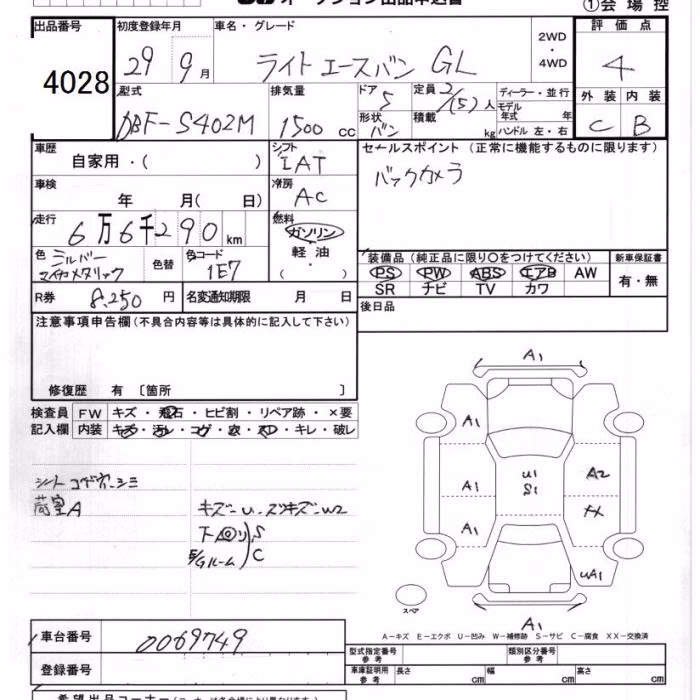 ①会場控
出品番号
4028
初度登録年月
29 9月
車名・グレード
ライトエースバン GL
2WD
・
4WD
評価点
4
外装 内装
C B
型式
DBF-S402M
排気量
1500 cc
ドア
5
形状
バン
定員
2/(5)人
積載
kg
ディーラー・並行
モデル
年式 年
ハンドル 左・右
車歴
自家用・( )
シフト
IAT
車検
年 月( 日)
冷房
AC
走行
6万6千290km
燃料
ガソリン
軽油
・
( )
色
シルバー
マイカメタリック
色替
色コード
1E7
R券
8,250円
名変通知期限 月 日
セールスポイント(正常に機能するものに限ります)
バックカメラ
装備品(純正品に限り○をつけてください)
PS PW ABS エアB AW
SR ナビ TV カワ
新車保証書
有・無
後日品
注意事項申告欄(不具合内容等は具体的に記入して下さい)
修復歴 有 〔箇所 〕
検査員
記入欄
FW キズ・飛石・ヒビ割・リペア跡・×要
内装 キズ・汚レ・コゲ・穴・スレ・キレ・破レ
荷室A
キズ-U
下回り S
E/Gルーム C
A1
A1
A1
A1
U1
S1
A2
UA1
A1
スペア
A-キズ E-エクボ U-凹み W-補修跡 S-サビ C-腐食 XX-交換済
車台番号
0069749
登録番号
型式指定番号
参考
類別区分番号
参考
車庫証明用
参考
長さ cm 幅 cm 高さ cm